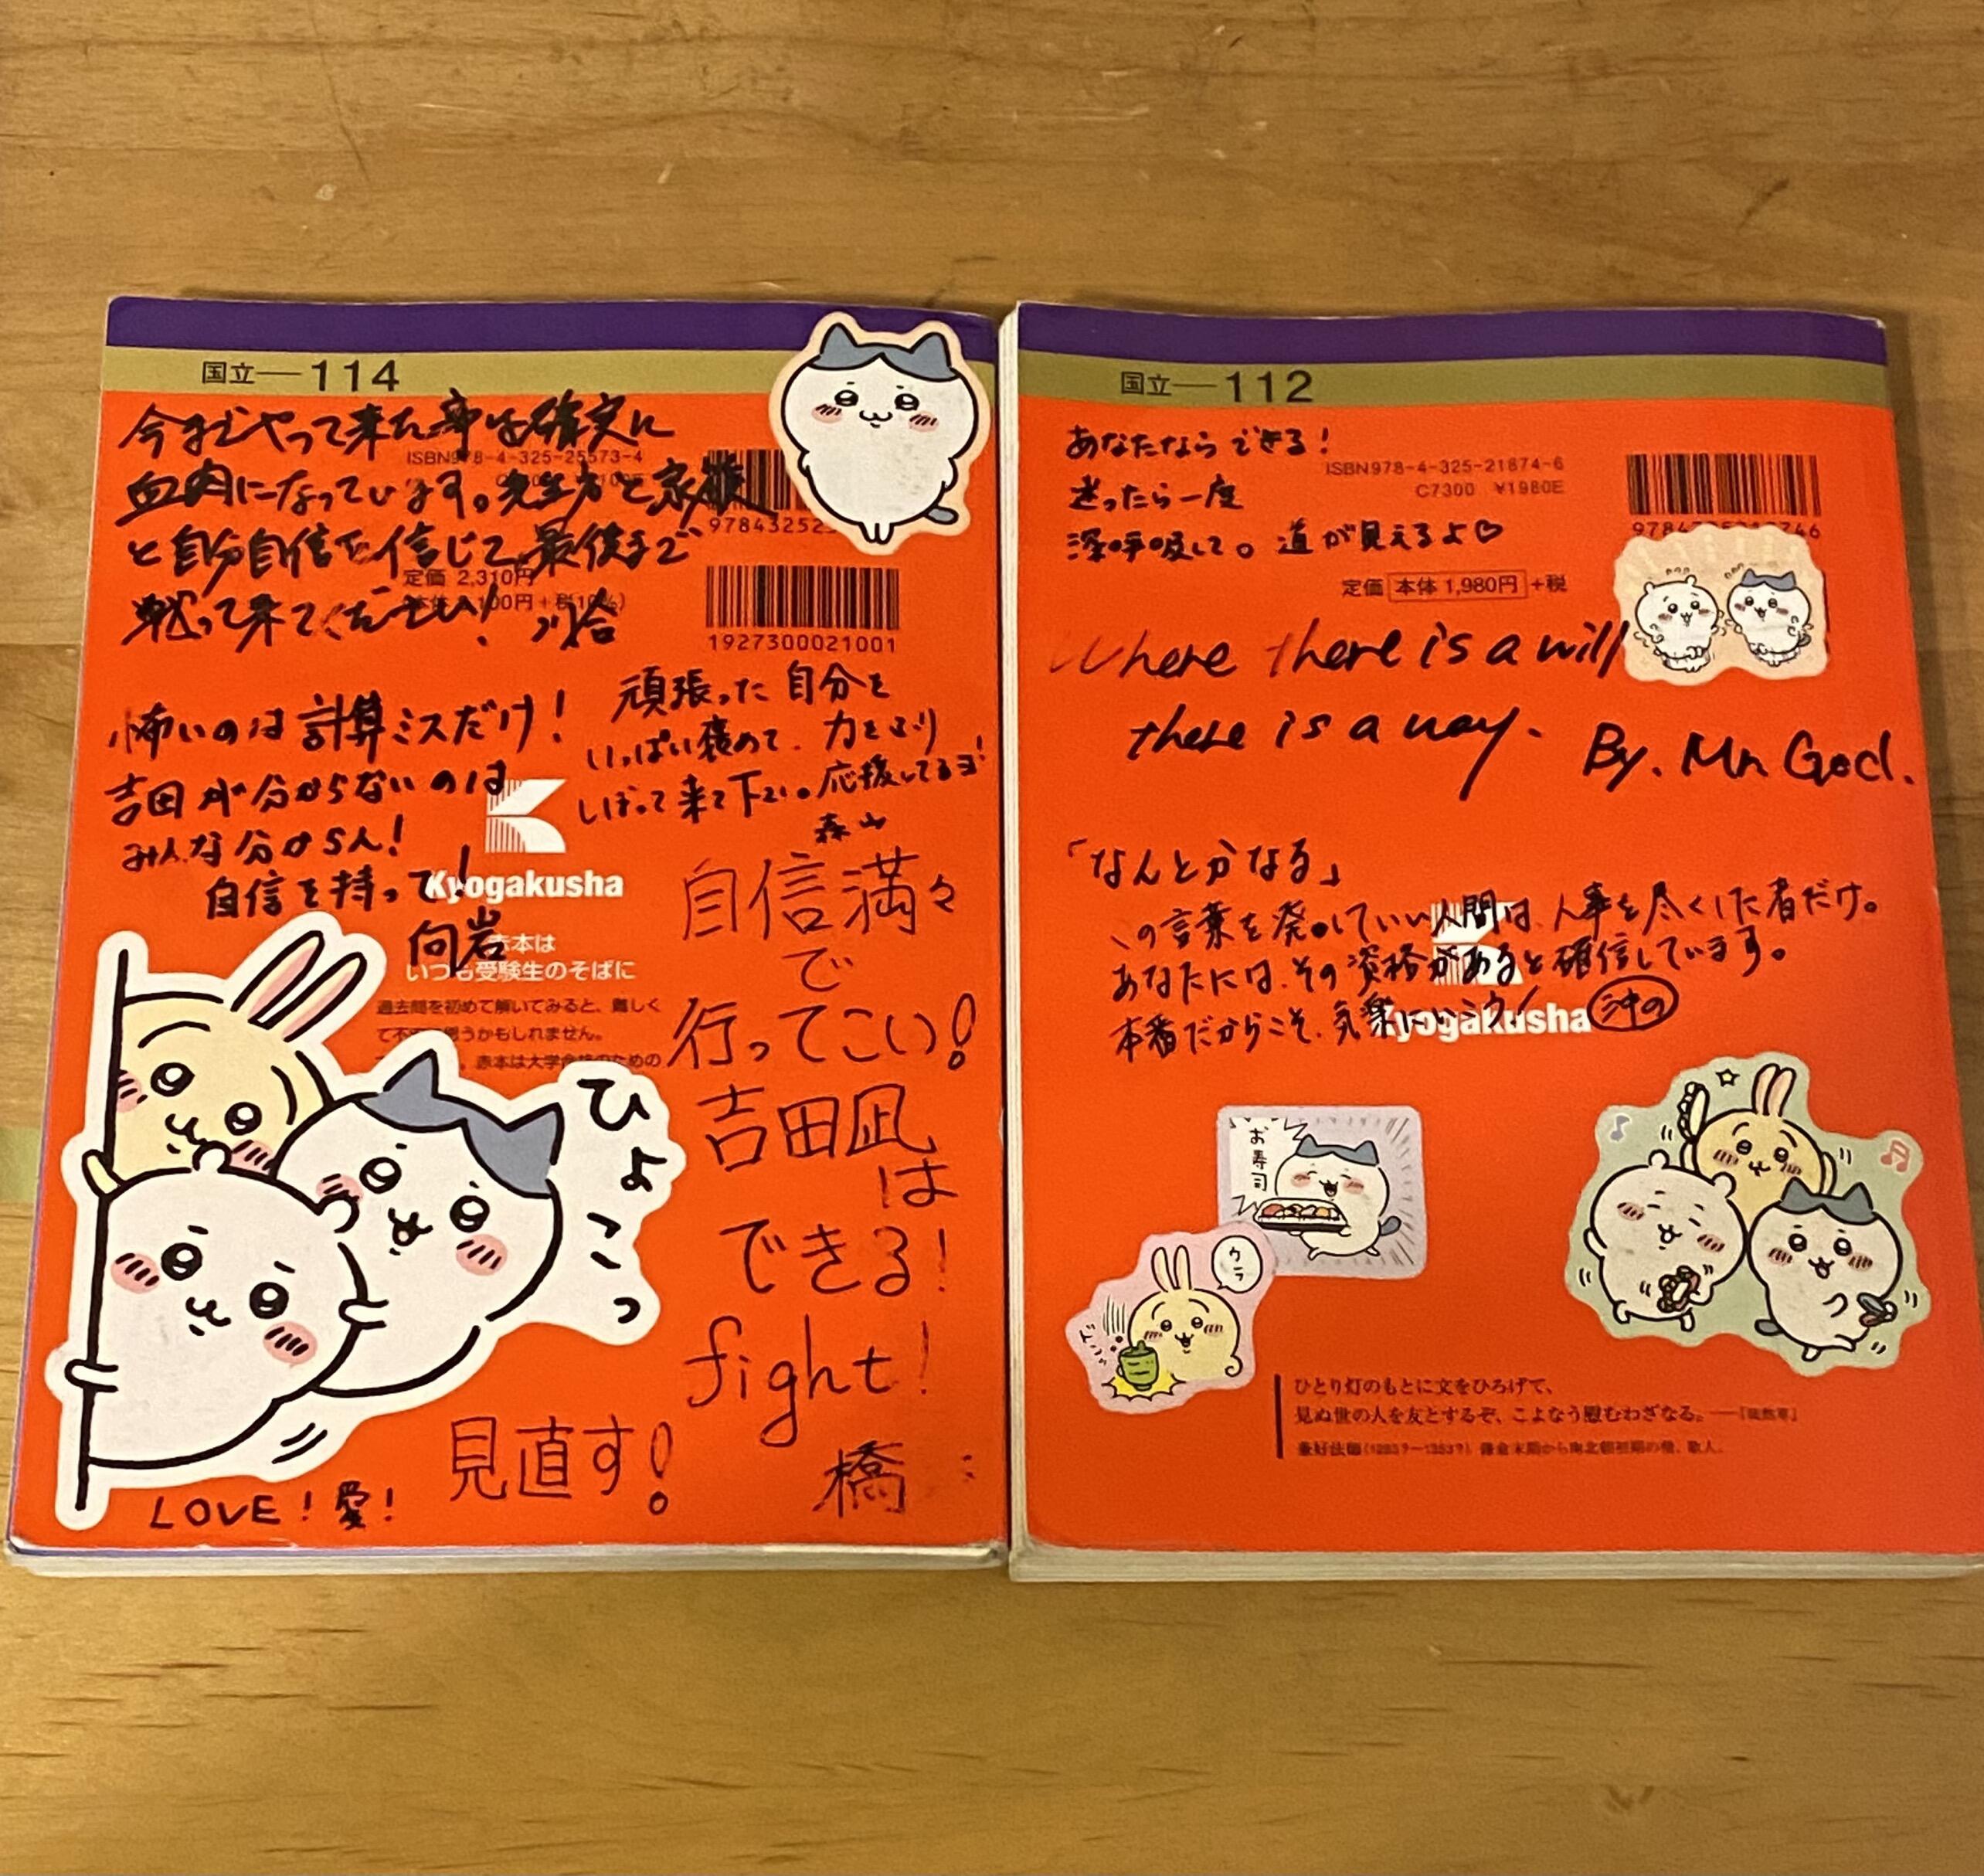 国立―114
今までやって来た事は確実に
血肉になっています。先生方と家族
と自分自信を信じて、最後まで
戦って来てください! 川合
ISBN978-4-325-25573-4
定価 2,310円
1927300021001
怖いのは計算ミスだけ!
吉田が分からないのは
みんな分からん!
自信を持って!
向岩
頑張った自分を
いっぱい褒めて、力をふり
しぼって来て下さい。応援してるヨ!
森山
Kyogakusha
赤本は
いつも受験生のそばに
過去問を初めて解いてみると、難しく
て不 思うかもしれません。
赤本は大学合格のための
自信満々
で
行ってこい!
吉田凪
は
できる!
fight!
橋
見直す!
ひょこっ
LOVE!愛!
国立―112
あなたならできる!
迷ったら一度
深呼吸して。道が見えるよ♡
ISBN978-4-325-21874-6
C7300 ¥1980E
定価 本体 1,980円 +税
Where there is a will
there is a way.
By. Mr. God.
「なんとかなる」
この言葉を発していい人間は、人事を尽くした者だけ。
あなたには、その資格があると確信しています。
本番だからこそ、気楽にいこう! 沖の
Kyogakusha
お寿司
ウラ
ひとり灯のもとに文をひろげて、
見ぬ世の人を友とするぞ、こよなう慰むわざなる。―『徒然草』
兼好法師(1283?~1352?) 鎌倉末期から南北朝初期の僧、歌人。